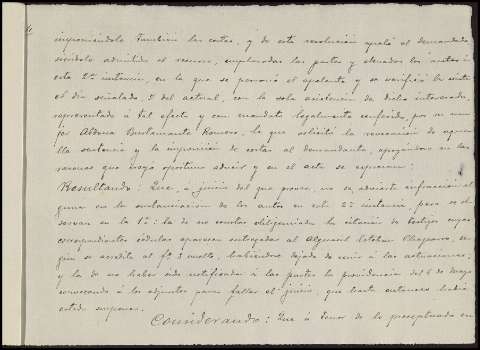 imponiéndole tambien las costas, y de esta resolucion apeló el demandado
siéndole admitido el recurso, emplazadas las partes y elevados los autos á
esta 2ª instancia, en la que se personó el apelante y se verificó la vista
el dia señalado, 5 del actual, con la sola asistencia de dicho interesado,
representado á tal efecto y con mandato legalmente conferido, por su mu-
jer Aldonza Bustamante Romero, la que solicitó la revocacion de aque-
lla sentencia y la imposicion de costas al demandante, apoyándose en las
razones que creyó oportuno aducir y en el acta se expresan:
Resultando: Que, á juicio del que provee, no se advierte infraccion al-
guna en la sustanciacion de los autos en esta 2ª instancia, pero se ob-
servan en la 1ª: la de no constar diligenciada la citacion de testigos cuyas
correspondientes cédulas aparecen entregadas al Alguacil Esteban Chaparro, se-
gun se acredita al fº 3 vuelto, habiéndose dejado de unir á las actuaciones;
y la de no haber sido notificada á las partes la providencia del 6 de Mayo
convocando á los adjuntos para fallar el juicio, que hasta entonces habia
estado suspenso.
Considerando: Que á tenor de lo preceptuado en